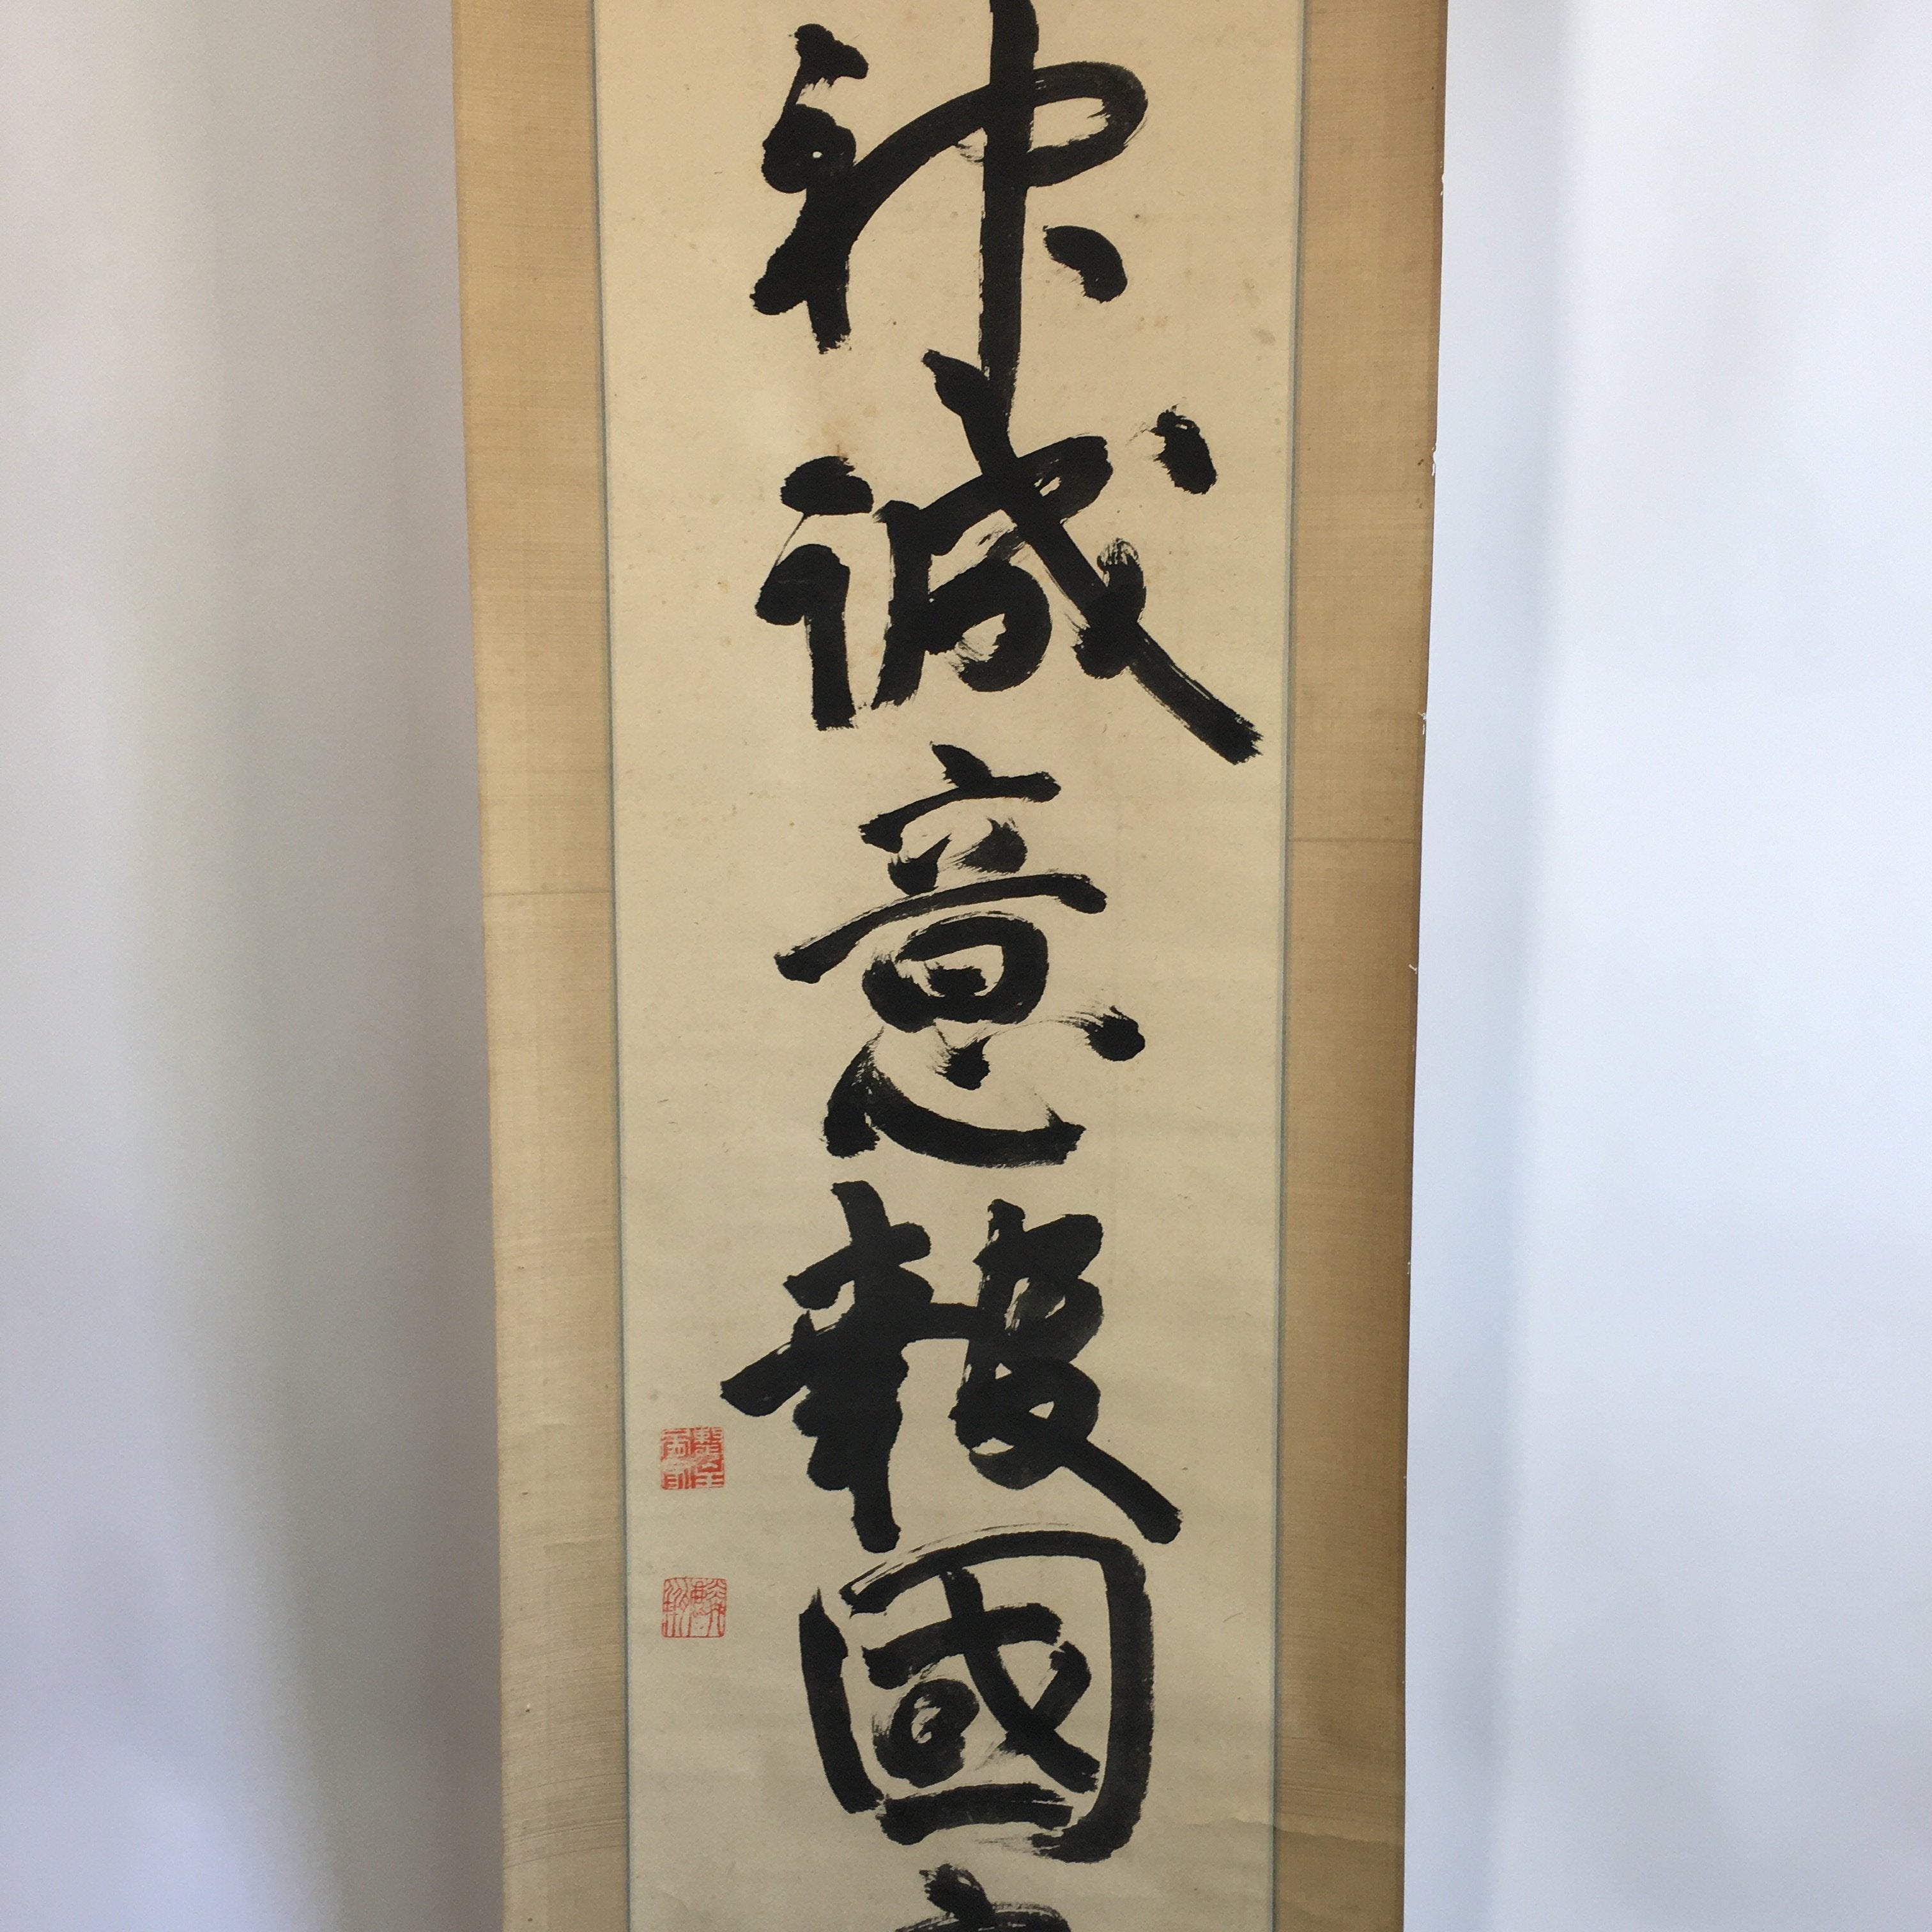 神誠意報國